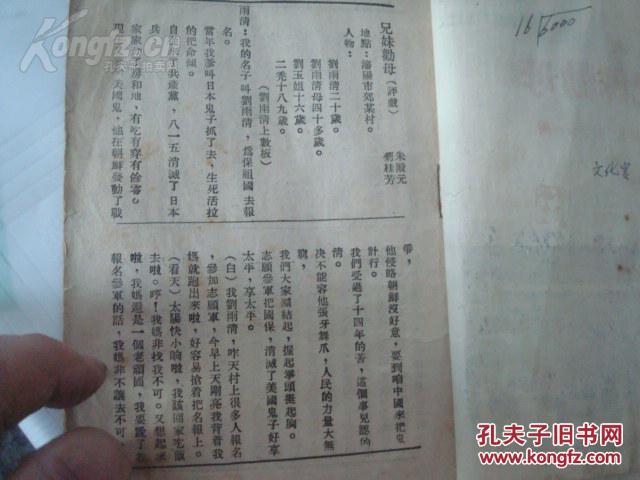 兄妹勸母(評戲)
朱殿元
劉桂芳
地點:瀋陽市郊某村。
人物:
劉雨清二十歲。
劉雨清母四十多歲。
劉玉姐十六歲。
二禿十八九歲。
(劉雨清上數板)
雨清:我的名子叫劉雨清,為保祖國去報
名。
當年我爹叫日本鬼子抓了去,生死活拉
的把命傾。
自從來了共產黨,八一五消滅了日本
兵。
家家分房和地,有吃有穿有餘富。
他在朝鮮發動了戰
爭,
他侵略朝鮮沒好意,要到咱中國來把兇
計行。
我們受過了十四年的苦,這個事兒認的
清。
決不能容他張牙舞爪,人民的力量大無
窮,
我們大家團結起,握起拳頭挺起胸。
志願參軍把國保,消滅了美國鬼子好享
太平,享太平。
(白)我劉雨清,昨天村上很多人報名
,參加志願軍,今早上天剛亮我背着我
媽就跑出來啦,好容易搶着把名報上。
(看天)太陽快小晌啦,我該回家吃飯
去啦。哼!我媽非找我不可。又想起來
啦,我媽還是一個老頑固,我要說了我
報名參軍的話,我媽非不讓去不可。
16 6000
文化室
孔夫子旧书网
www.kongfz.com
孔夫子旧书网
www.kongfz.com